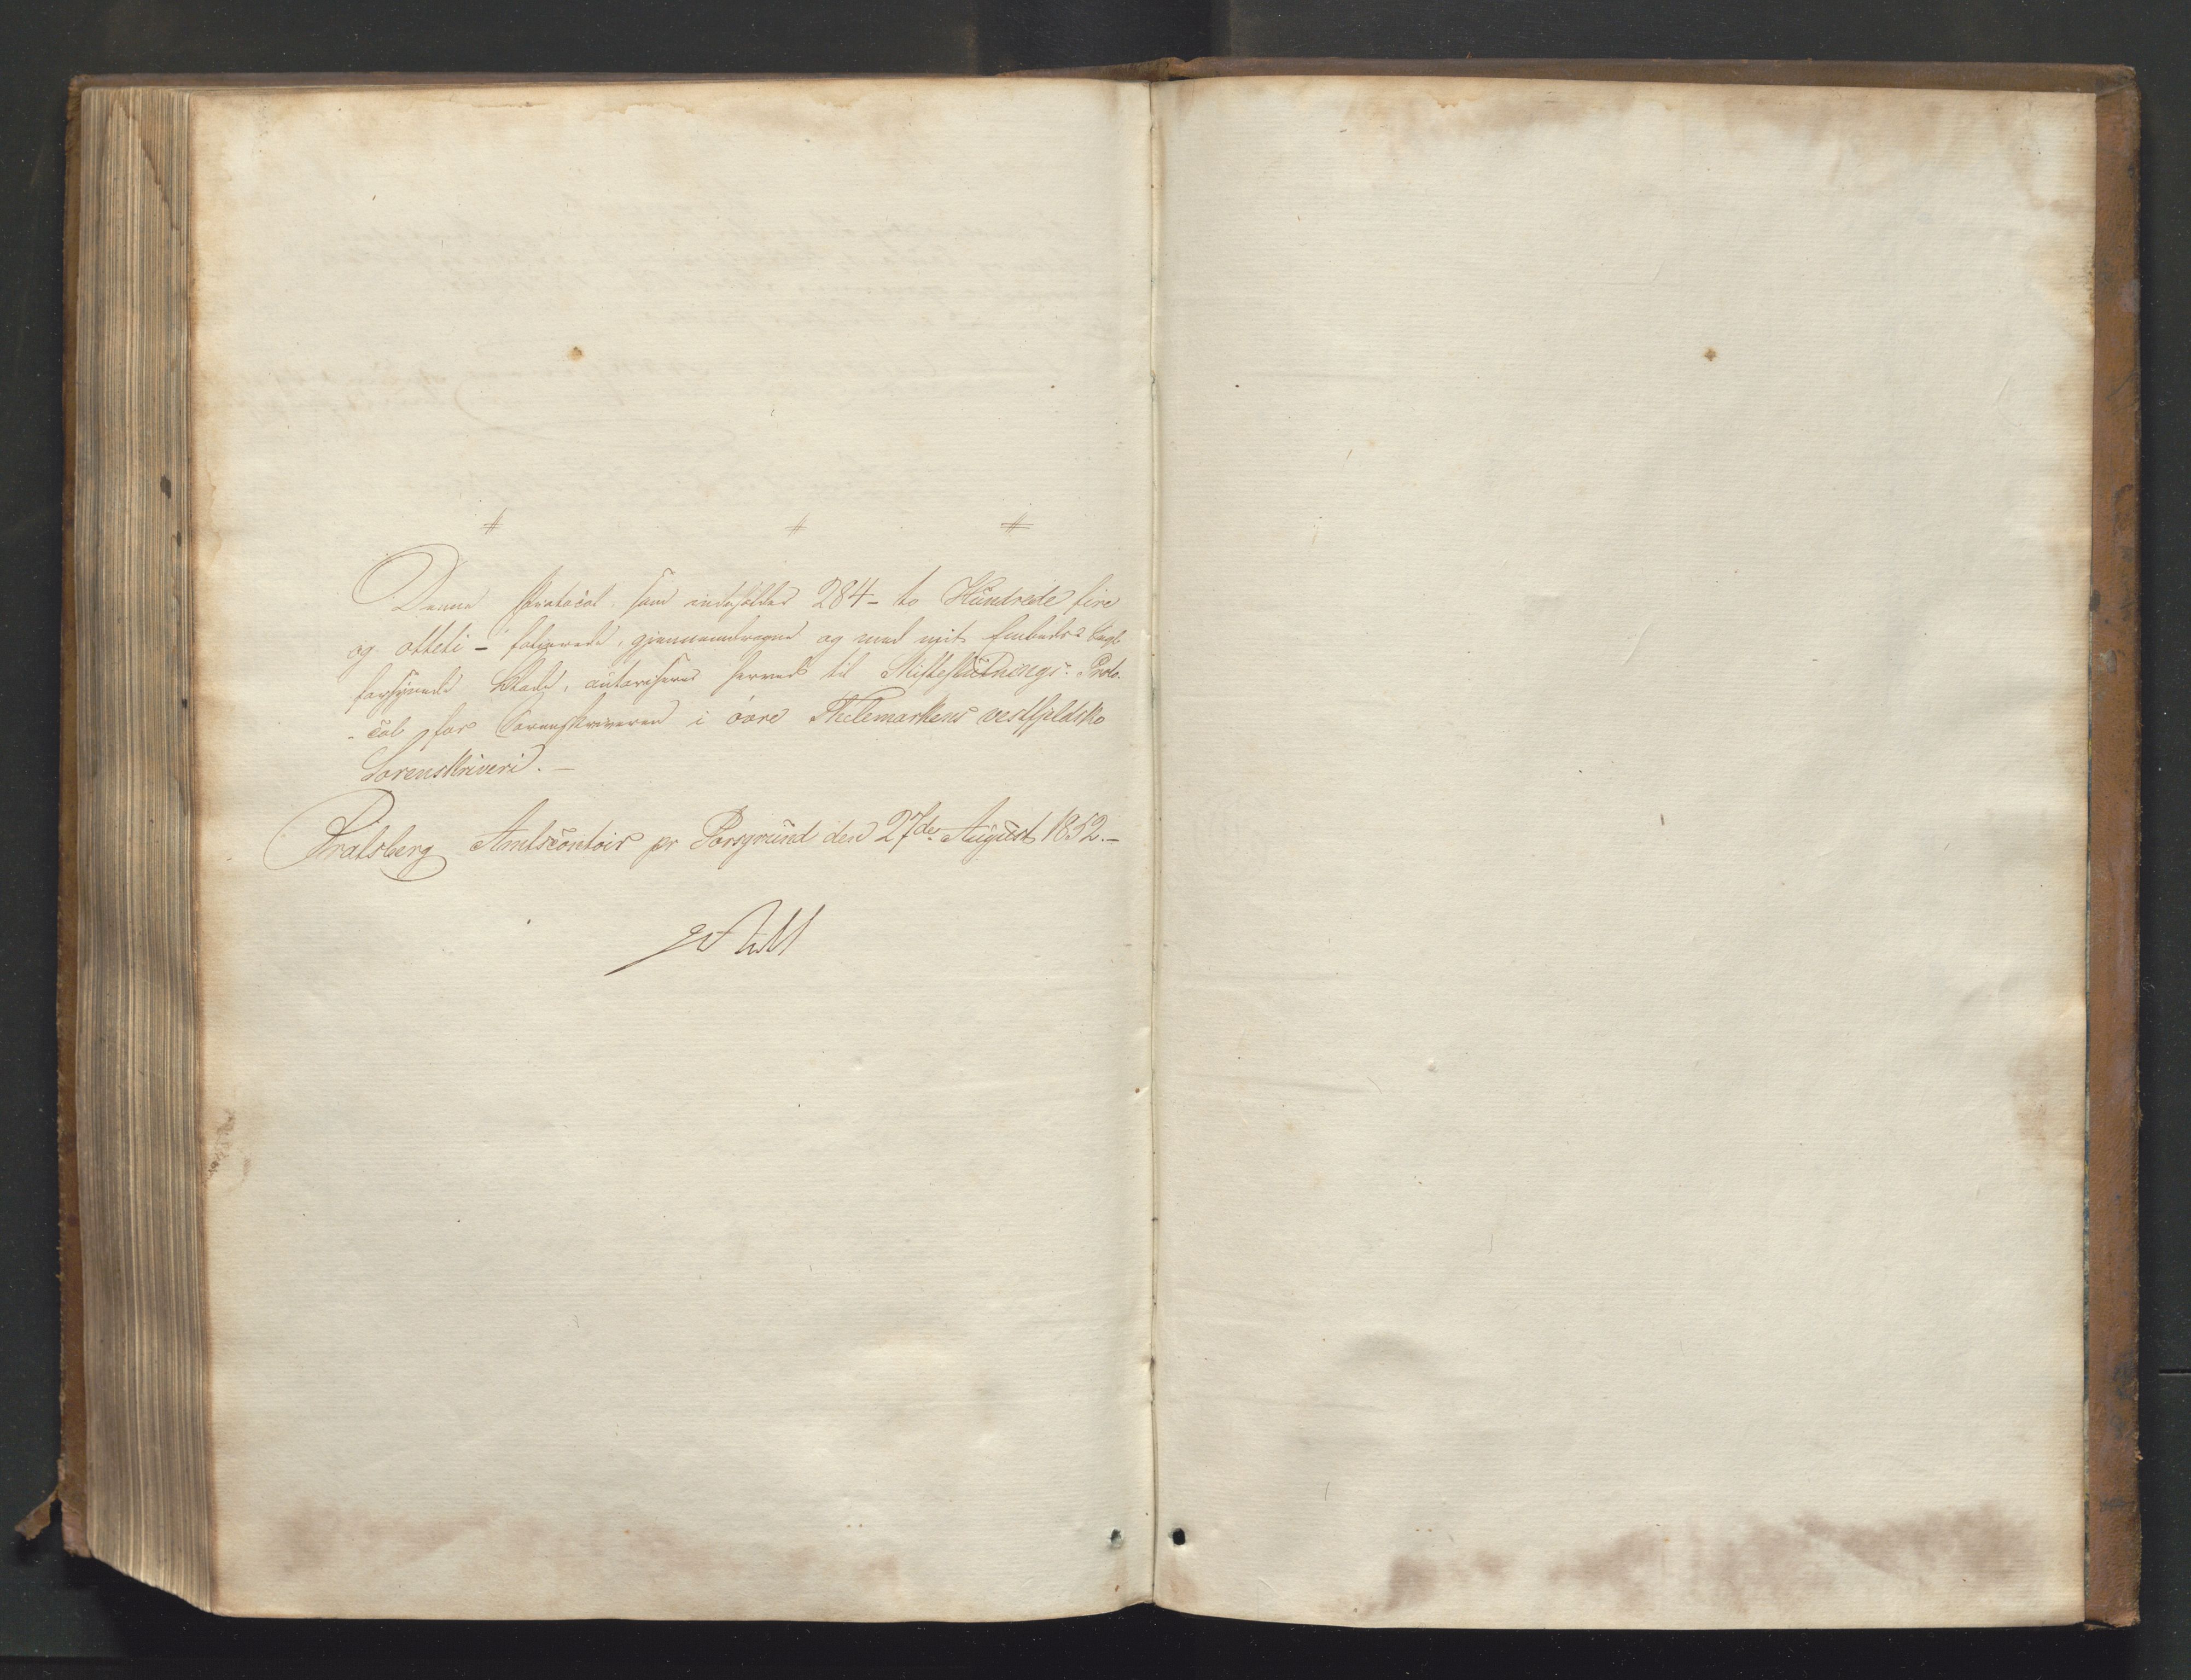 # # #
Denne Protocol som indeholder 284 – to Hundrede fire
og otteti – folierede, gjennemdragne og med mit Embeds Segl
forsynede Blade, autoriseres herved til Skifteslutnings-Proto-
-col for Sorenskriveren i övre Thelemarkens vestfjeldske
Sorenskriveri. –
Bratsberg Amtscontoir pr Porsgrund den 27de August 1852. –